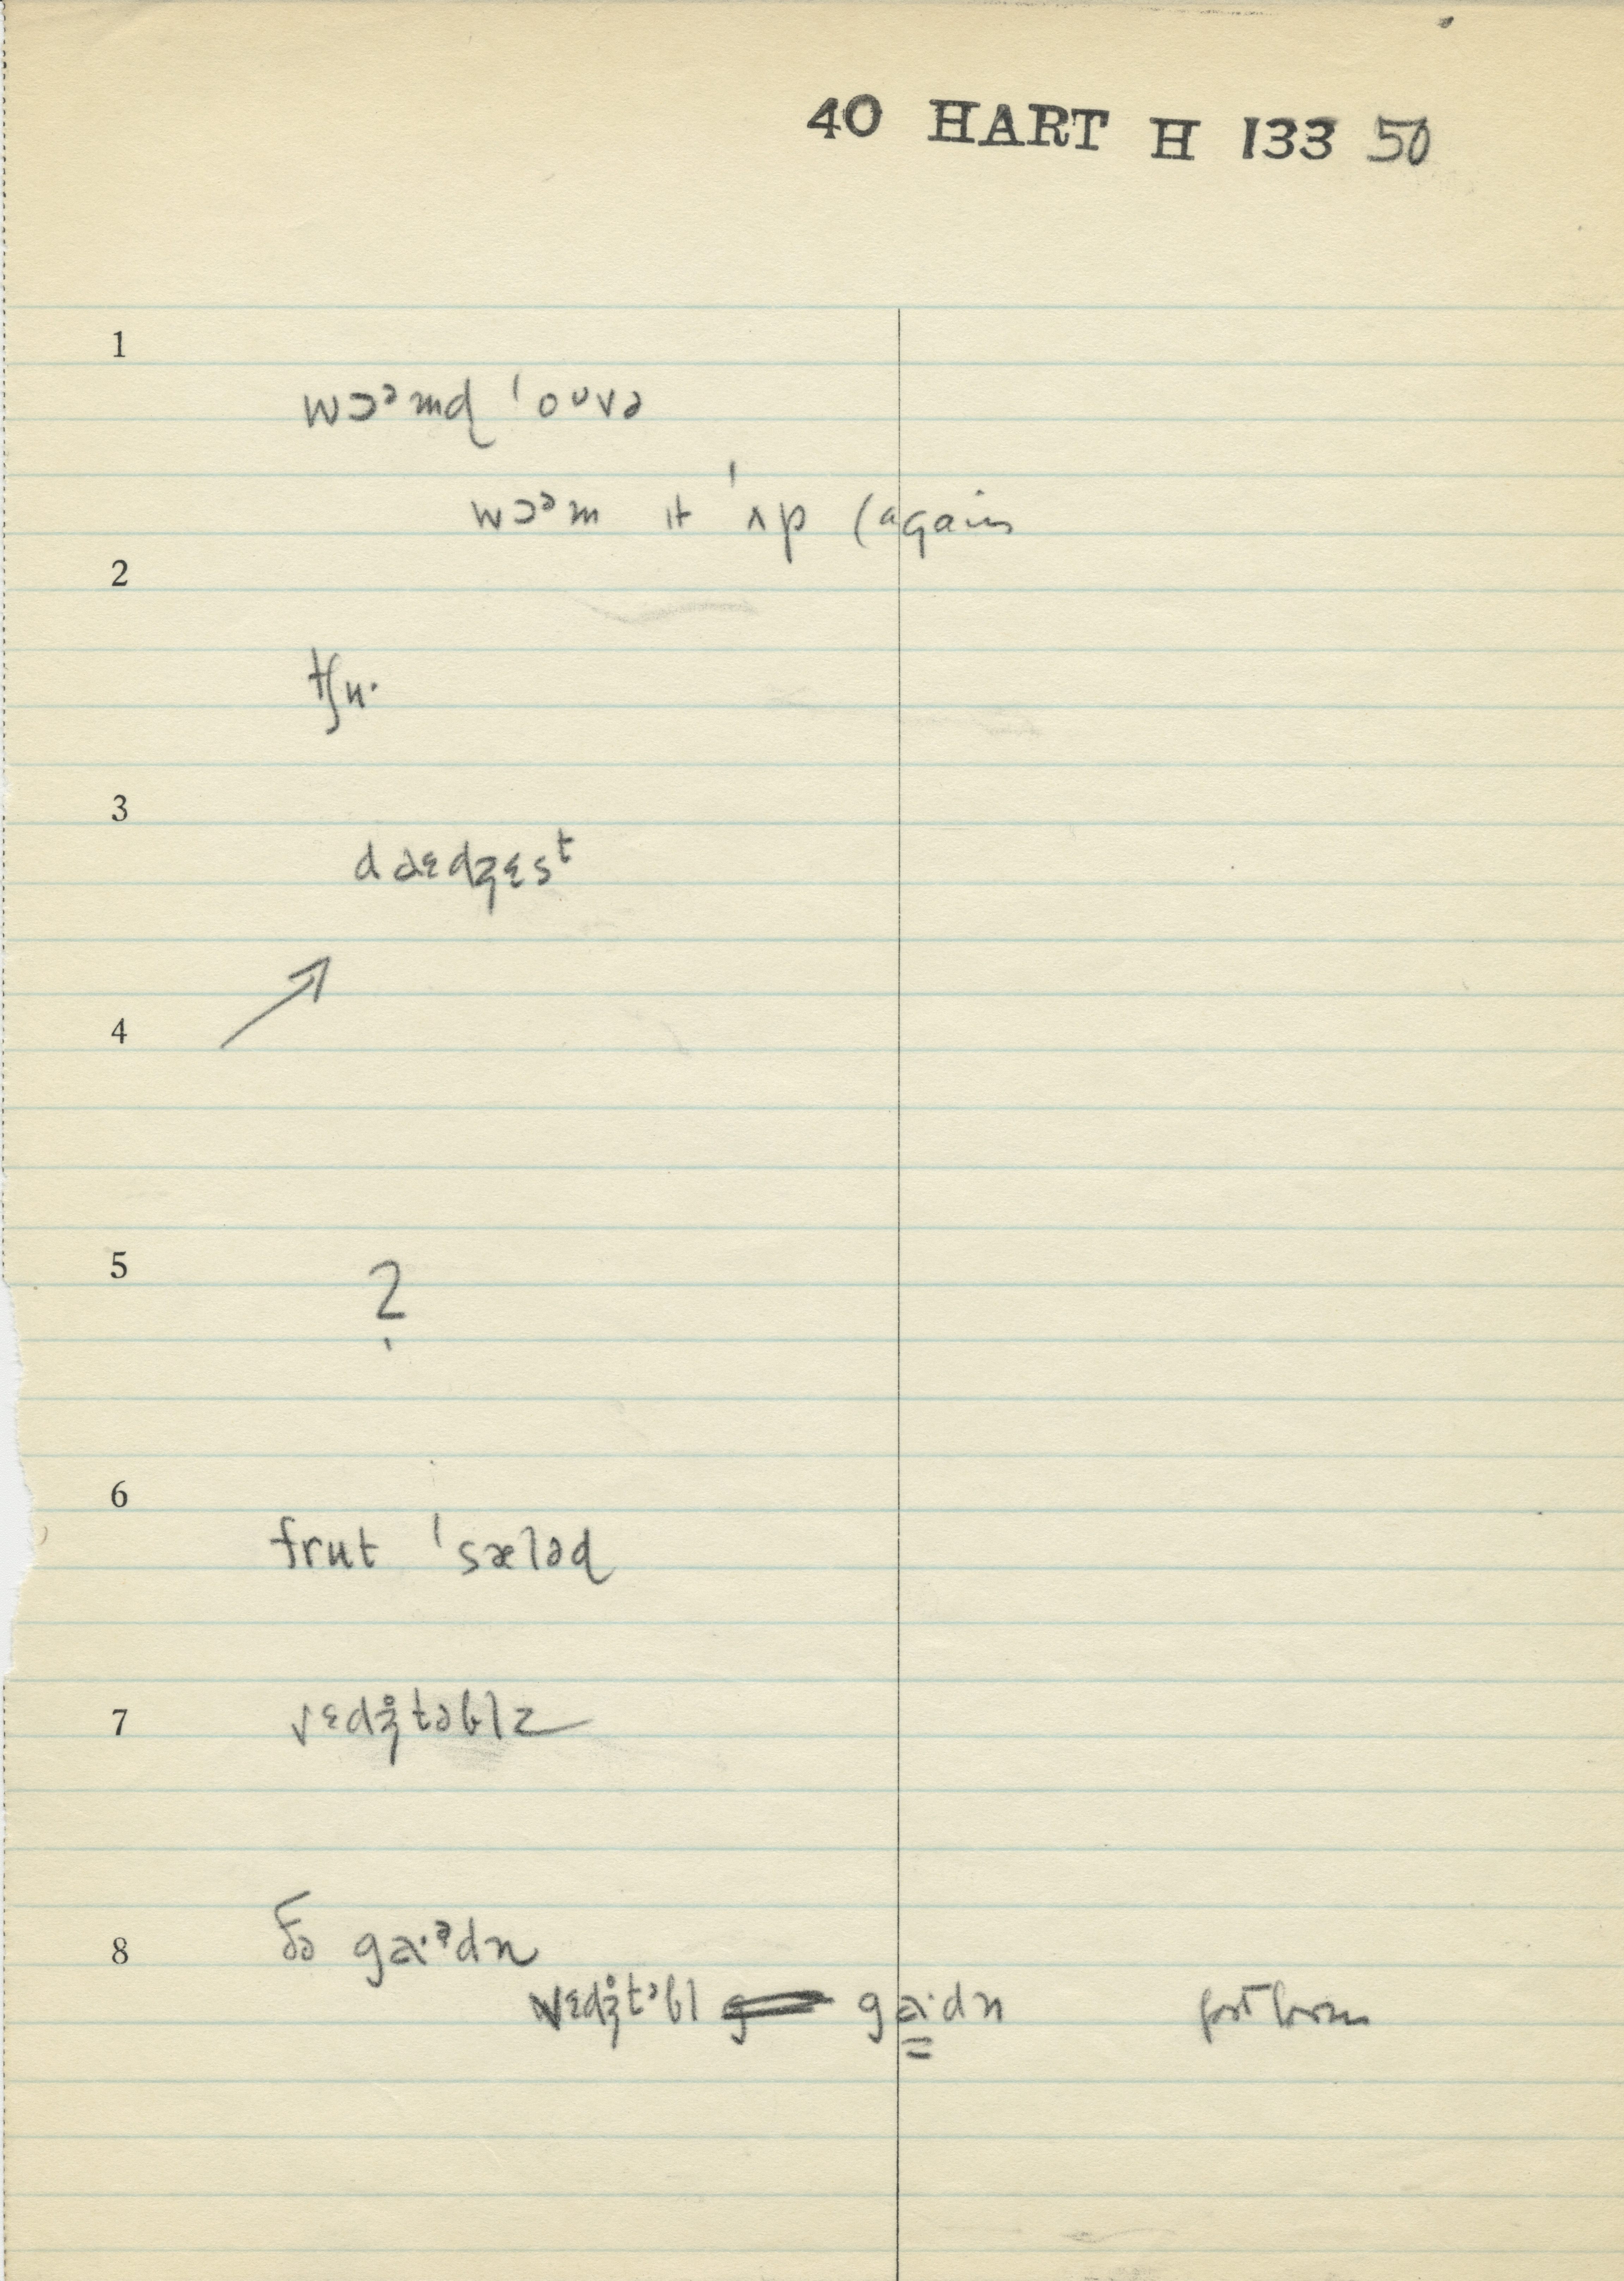 40 HART H 133 50
1
wɔᵊmd ˈoᵁvə
wɔᵊm ɪt ˈʌp (again
2
tʃu·
3
daɛdʒɛsᵗ
4
5
?
6
frut ˈsæləd
7
vɛdʒ̊təblz
8
ðə ga·ᵊdn
vɛdʒ̊tᵊbl ga·dn